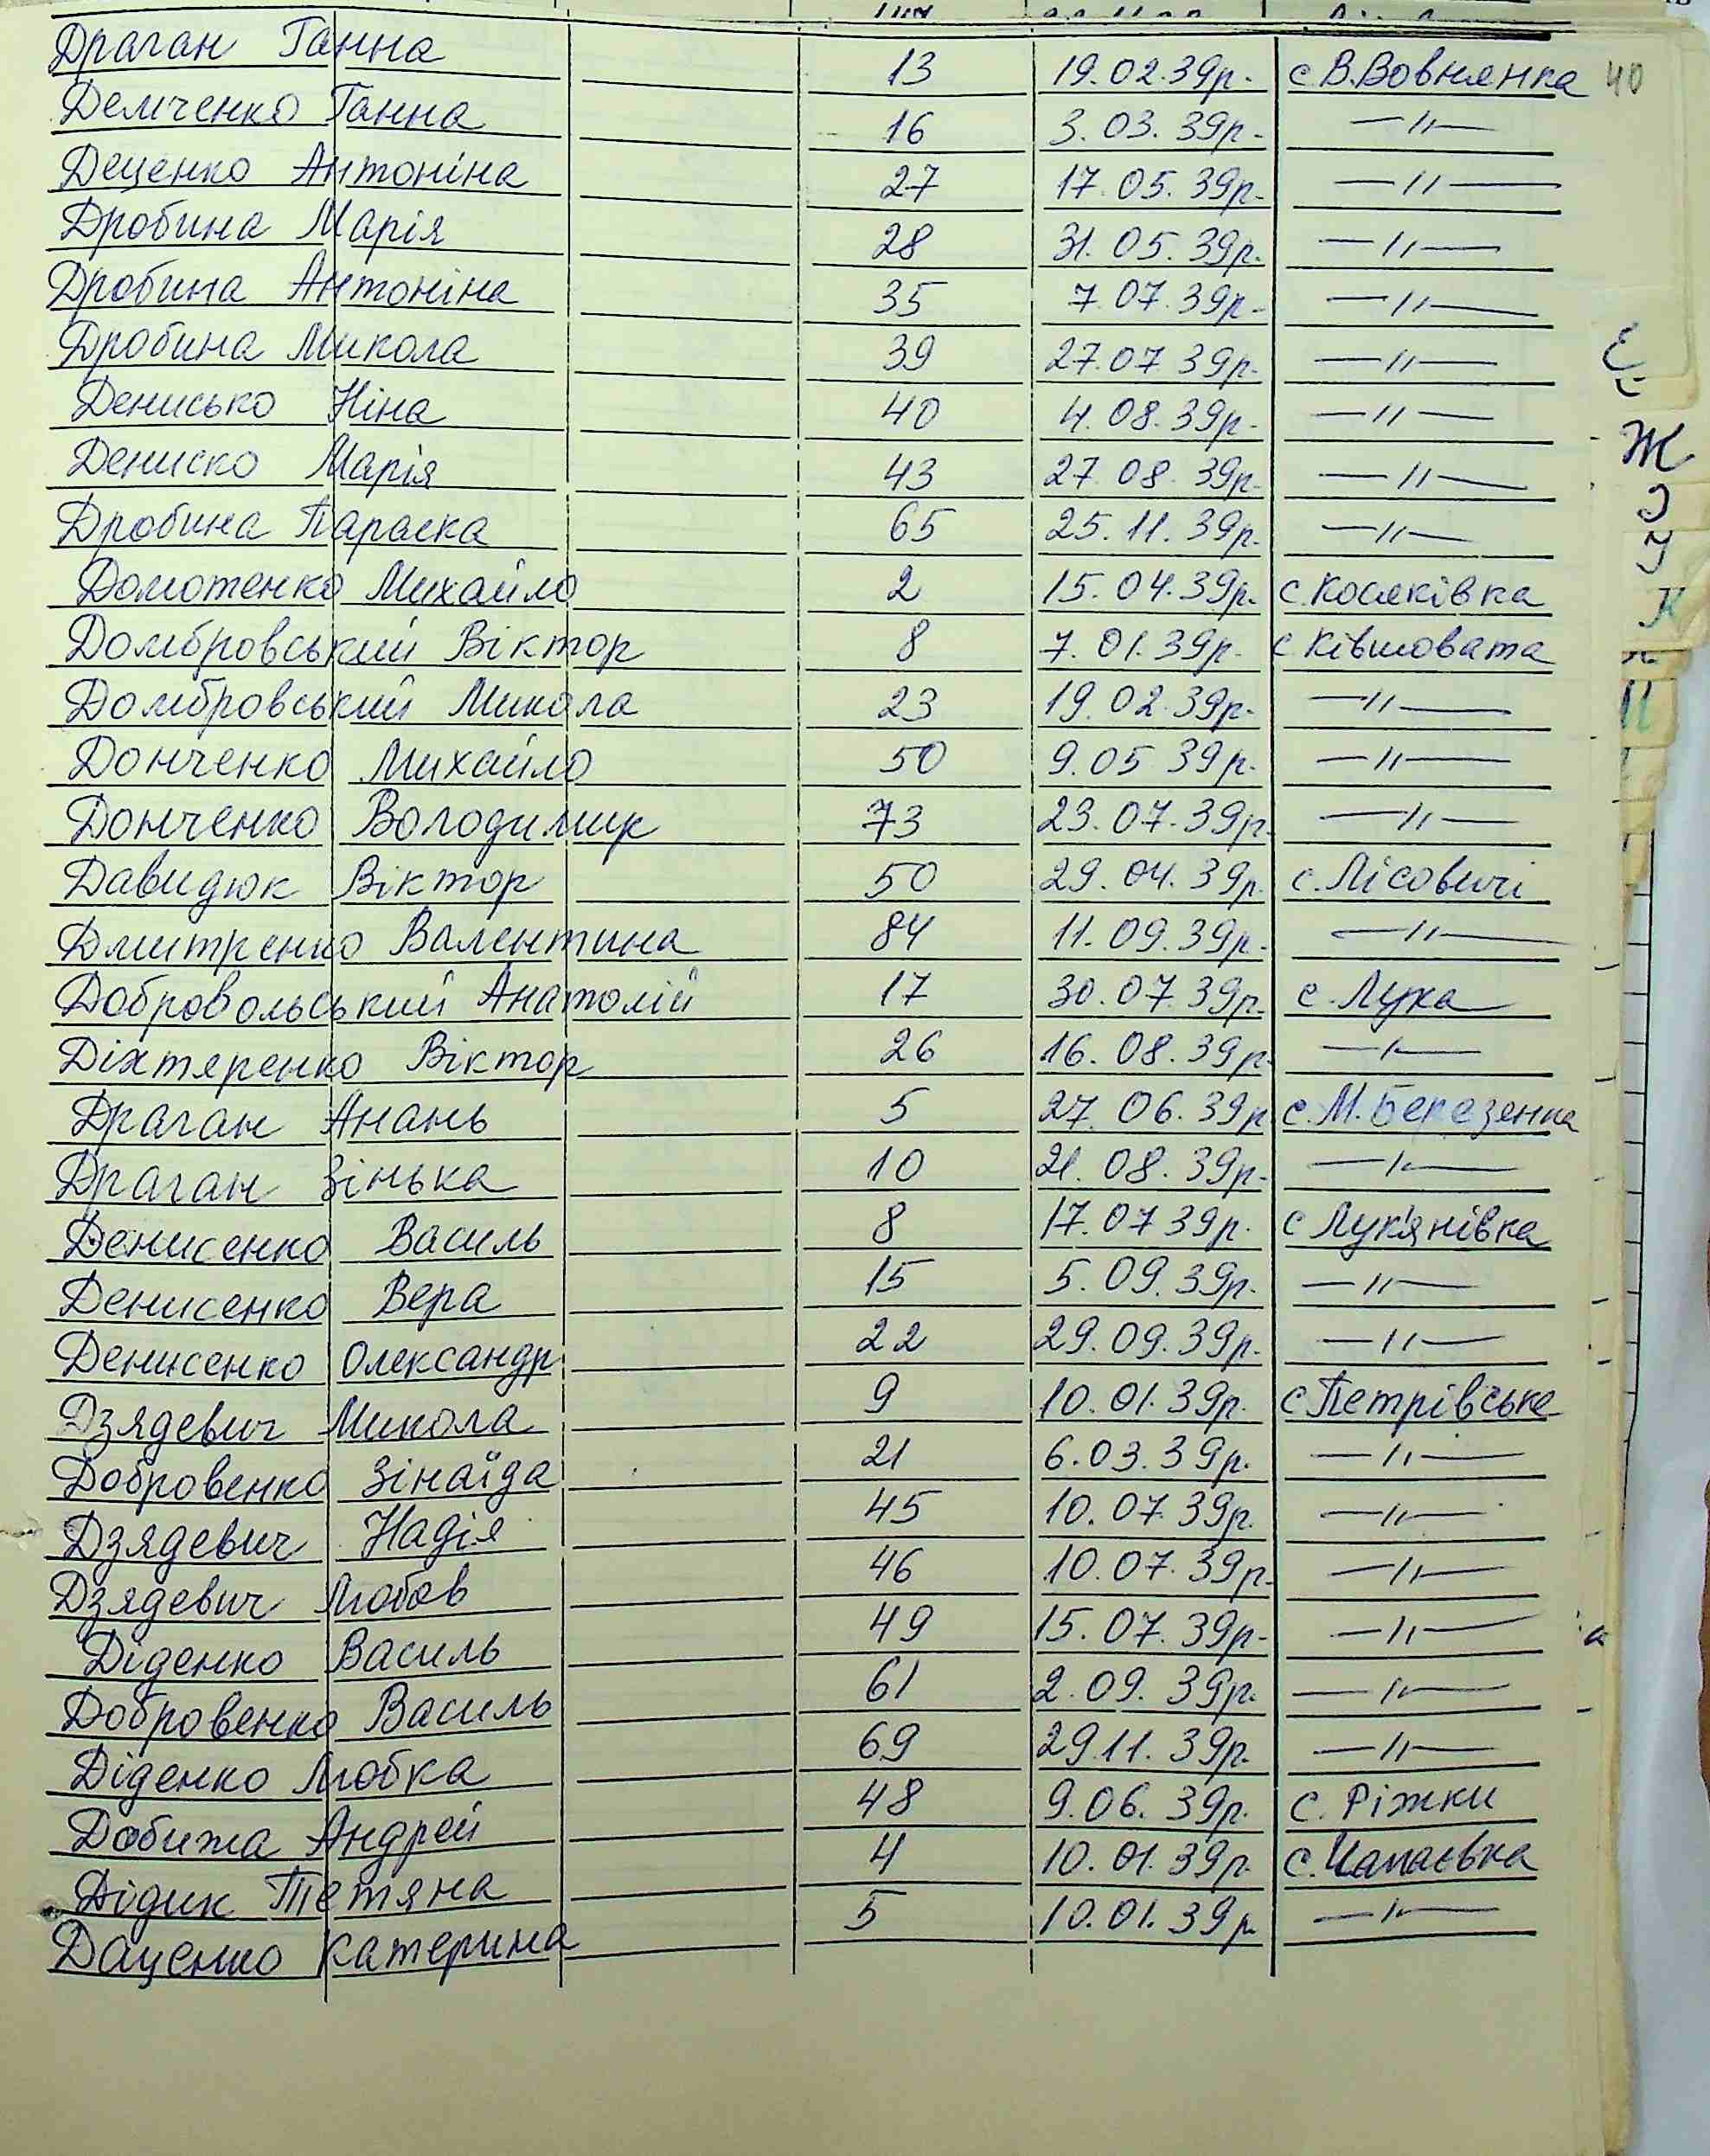 Драган Ганна 13 19.02.39р. с.В.Вовнянка 40
Демченко Ганна 16 3.03.39р. —"—
Деценко Антоніна 27 17.05.39р. —"—
Дробина Марія 28 31.05.39р. —"—
Дробина Антоніна 35 7.07.39р. —"—
Дробина Микола 39 27.07.39р. —"—
Денисько Ніна 40 4.08.39р. —"—
Дениско Марія 43 27.08.39р. —"—
Дробина Параска 65 25.11.39р. —"—
Домотенко Михайло 2 15.04.39р. с.Косяківка
Домбровський Віктор 8 7.01.39р. с Ківшовата
Домбровський Микола 23 19.02.39р. —"—
Донченко Михайло 50 9.05.39р. —"—
Донченко Володимир 73 23.07.39р. —"—
Давидюк Віктор 50 29.04.39р. с.Лісовичі
Дмитренко Валентина 84 11.09.39р. —"—
Добровольський Анатолій 17 30.07.39р. с.Лука
Діхтяренко Віктор 26 16.08.39р. —"—
Драган Анань 5 27.06.39р с.М.Березенка
Драган Зінька 10 21.08.39р. —"—
Денисенко Василь 8 17.07.39р. с Лук'янівка
Денисенко Вера 15 5.09.39р. —"—
Денисенко Олександр 22 29.09.39р. —"—
Дзядевич Микола 9 10.01.39р. с Петрівське
Добровенко Зінаїда 21 6.03.39р. —"—
Дзядевич Надія 45 10.07.39р. —"—
Дзядевич Любов 46 10.07.39р. —"—
Діденко Василь 49 15.07.39р. —"—
Добровенко Василь 61 2.09.39р. —"—
Діденко Любка 69 29.11.39р. —"—
Добижа Андрей 48 9.06.39р. с. Ріжки
Дідик Тетяна 4 10.01.39р. с.Чапаєвка
Даценко Катерина 5 10.01.39р. —"—
Є
Ж
З
І
К